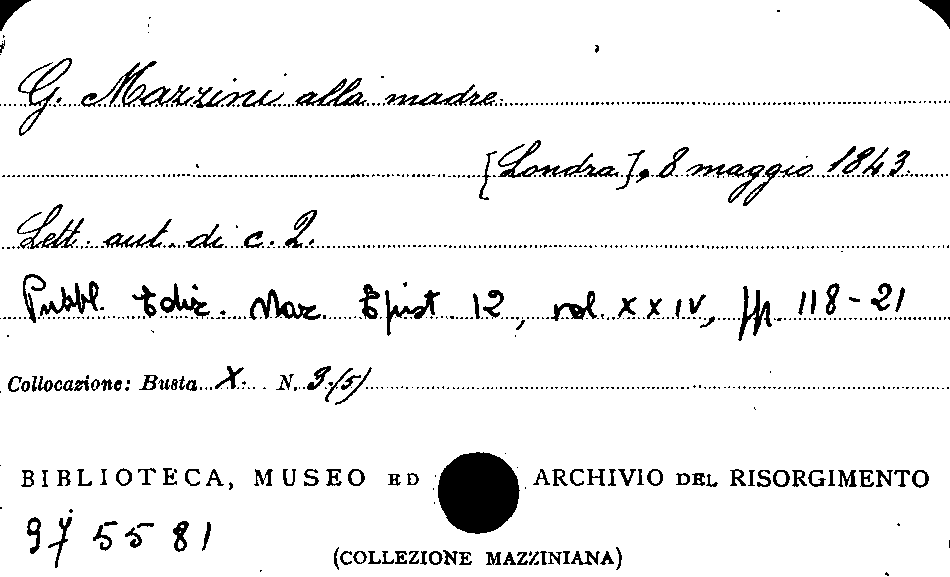 G. Mazzini alla madre
[Londra], 8 maggio 1843
Lett. aut. di c. 2.
Pubbl. Ediz. Naz. Epist. 12, vol. XXIV, pp. 118-21
Collocazione: Busta X. N. 3.(5)
BIBLIOTECA, MUSEO ED ARCHIVIO DEL RISORGIMENTO
975581
(COLLEZIONE MAZZINIANA)